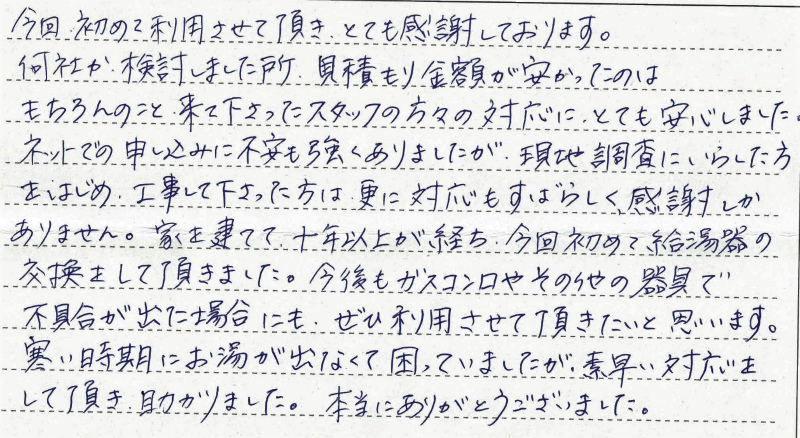 今回、初めて利用させて頂き、とても感謝しております。
何社か、検討しました所、見積もり金額が安かったのは
もちろんのこと、来て下さったスタッフの方々の対応に、とても安心しました。
ネットでの申し込みに不安も強くありましたが、現地調査にいらした方
をはじめ、工事して下さった方は、更に対応もすばらしく、感謝しか
ありません。家を建てて、十年以上が経ち、今回初めて給湯器の
交換をして頂きました。今後もガスコンロやその他の器具で
不具合が出た場合にも、ぜひ利用させて頂きたいと思います。
寒い時期にお湯が出なくて困っていましたが、素早い対応を
して頂き、助かりました。本当にありがとうございました。